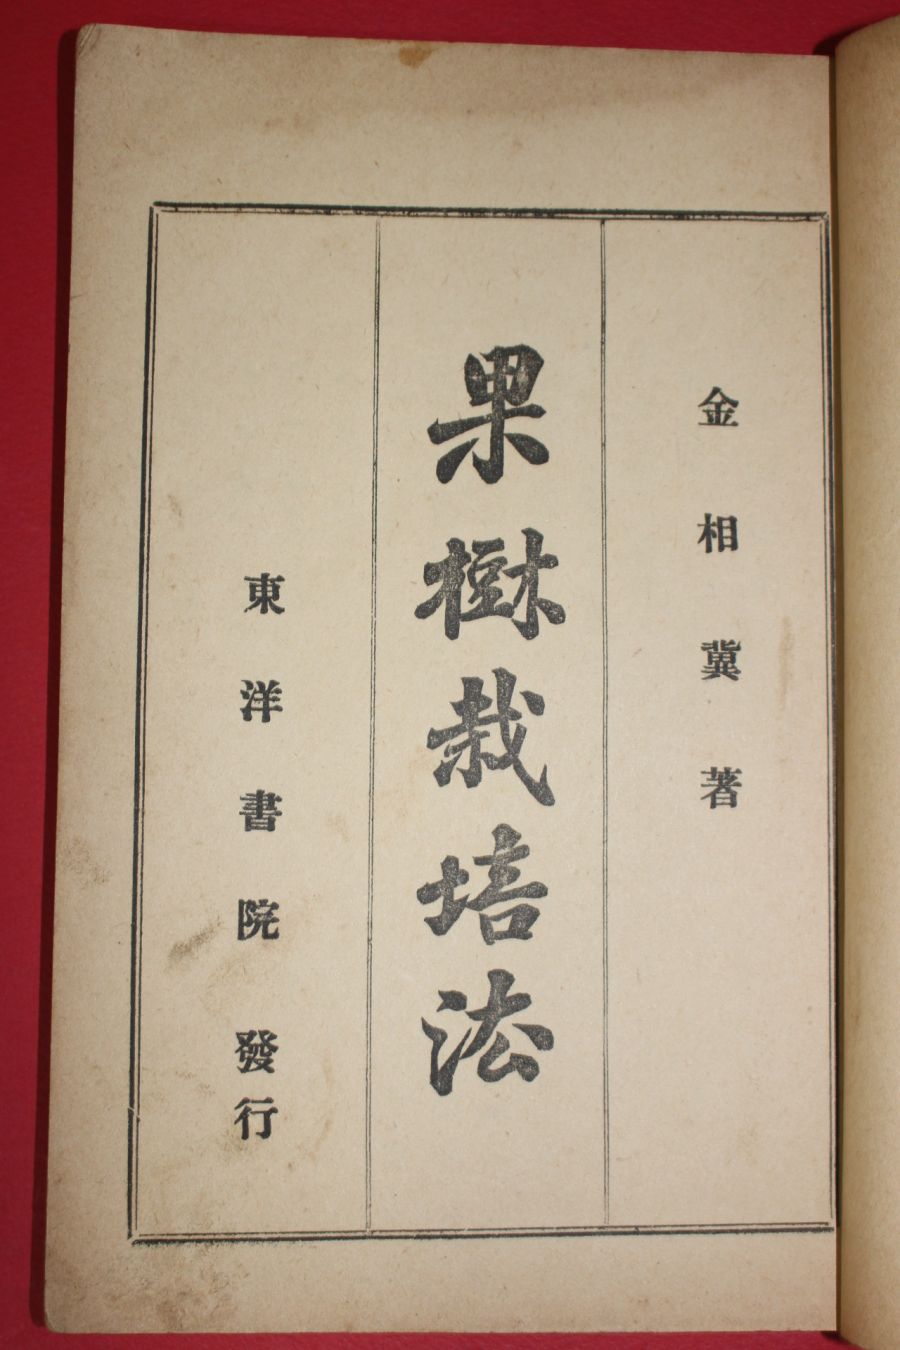 金相冀著
果樹栽培法
東洋書院 發行